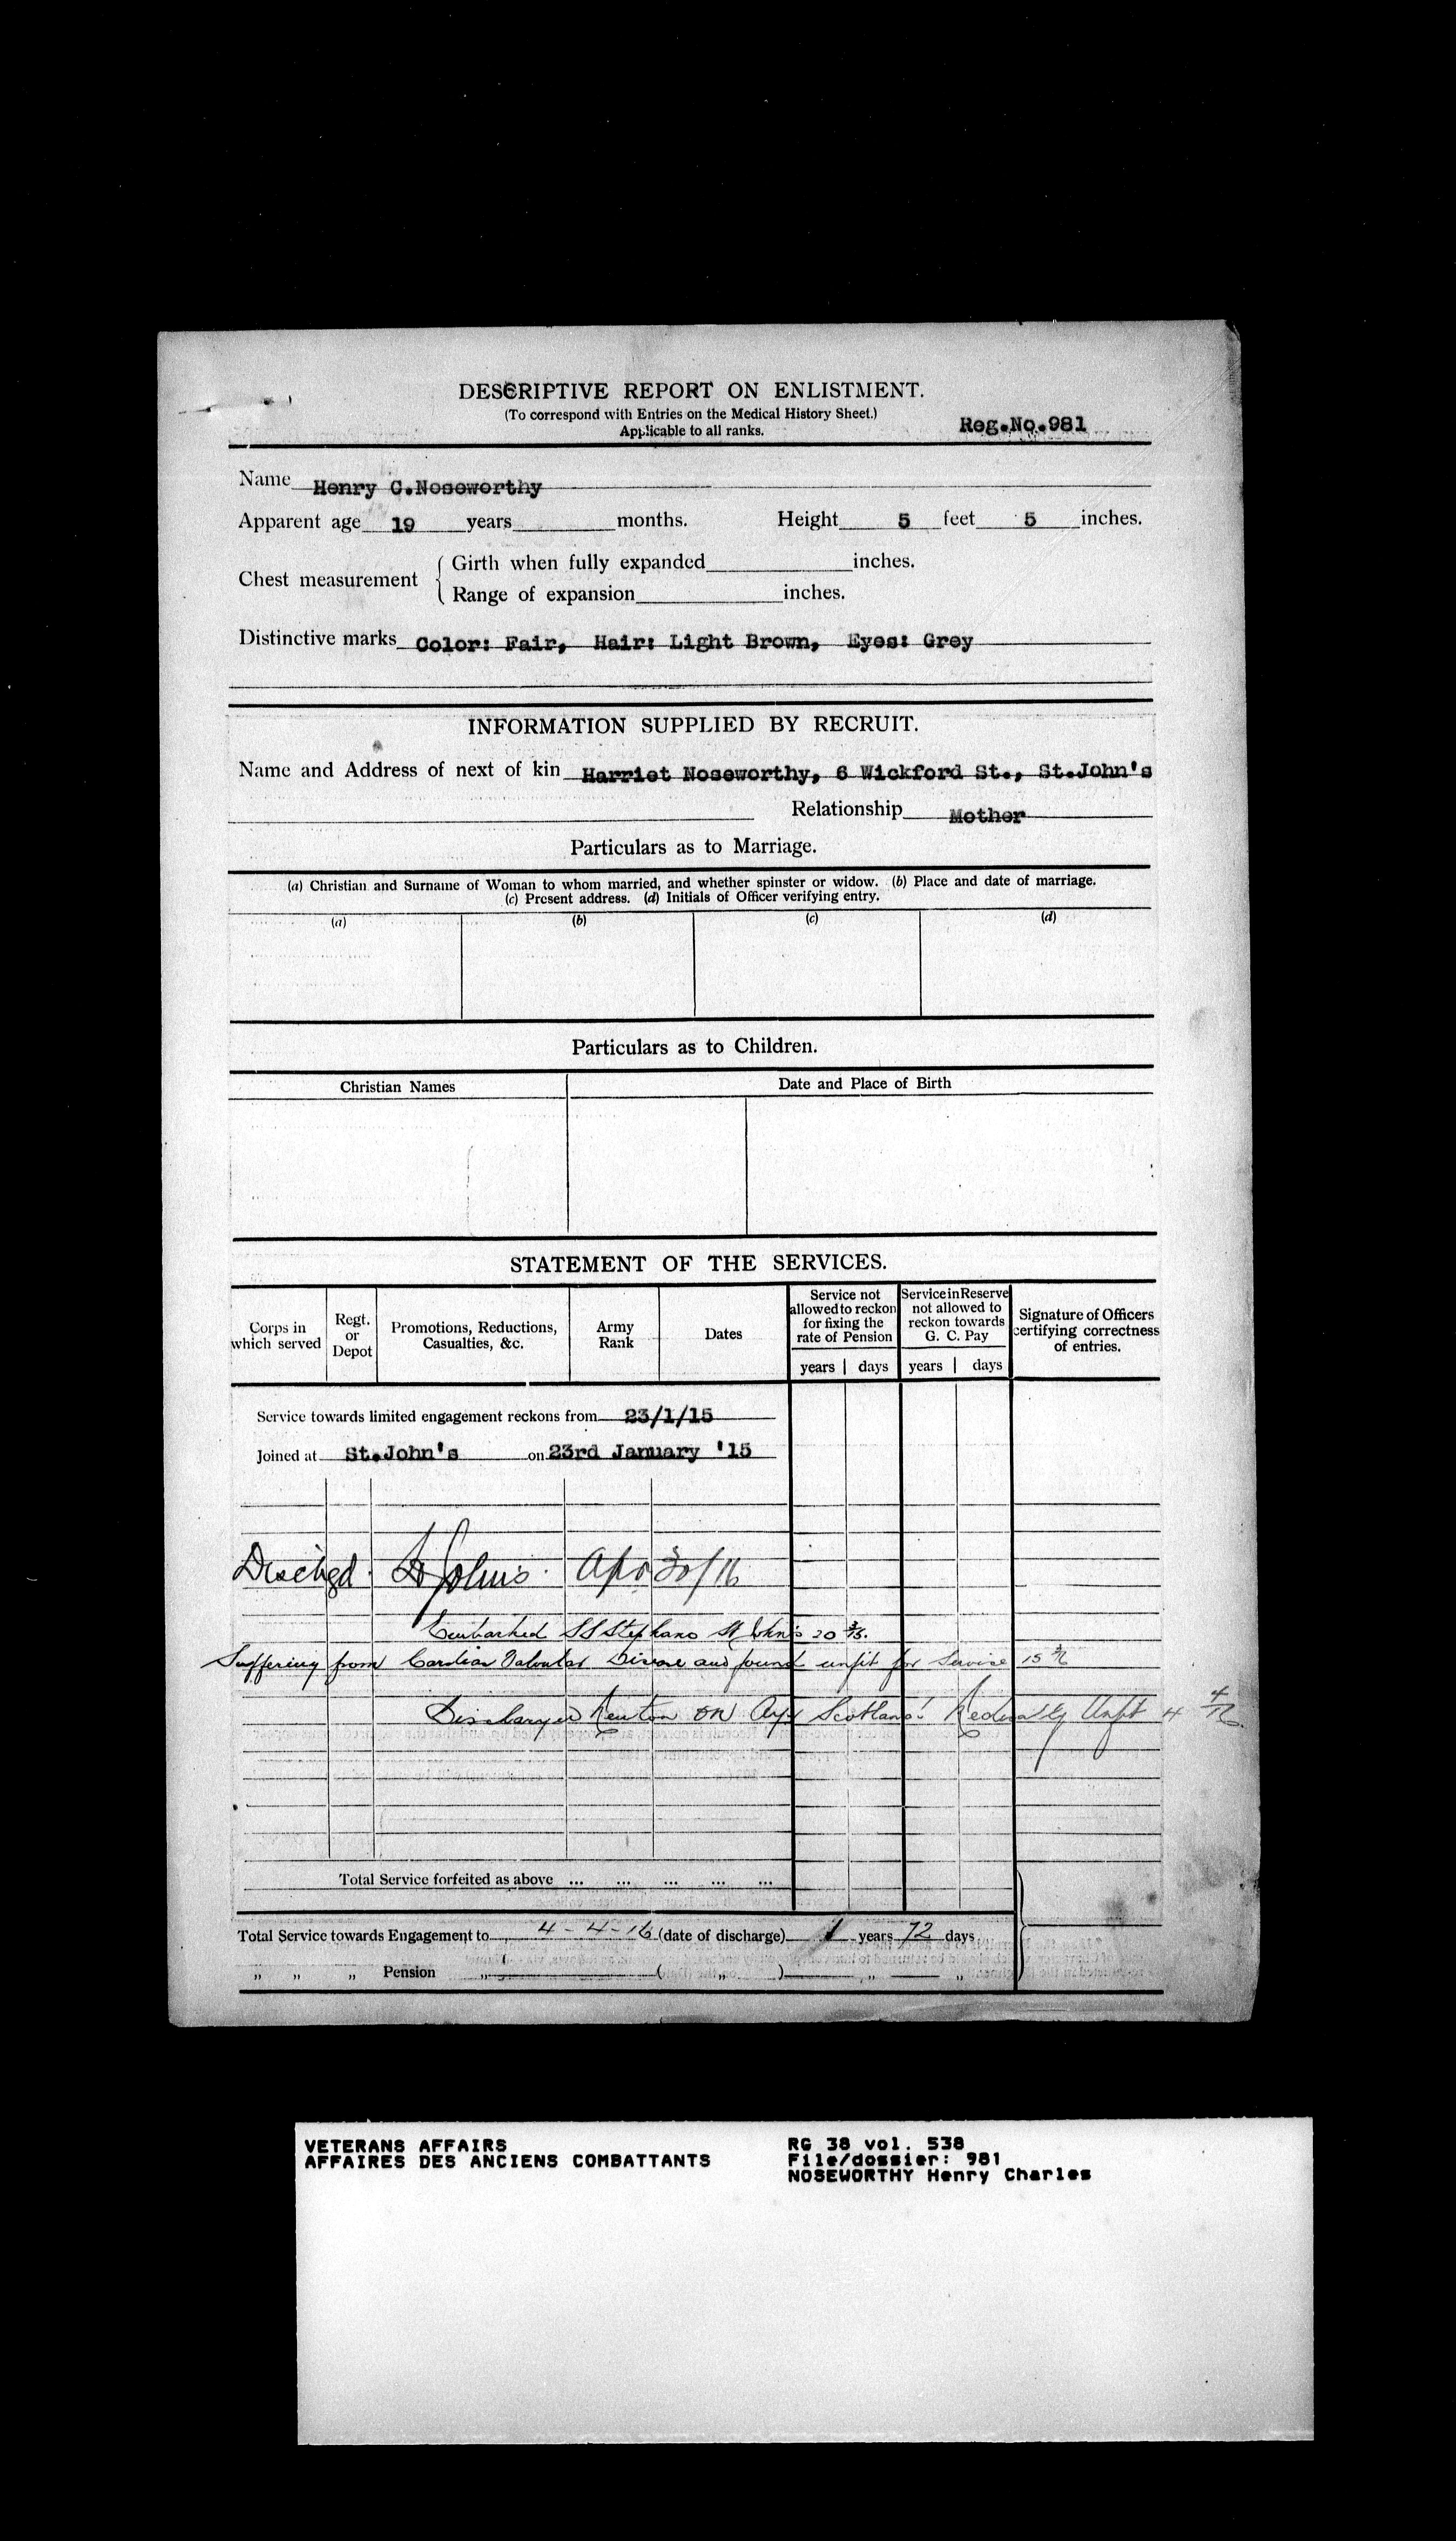 DESCRIPTIVE REPORT ON ENLISTMENT.
(To correspond with Entries on the Medical History Sheet.)
Applicable to all ranks.
Reg.No.981
Name Henry C.Noseworthy
Apparent age 19 years months. Height 5 feet 5 inches.
Chest measurement { Girth when fully expanded inches.
Range of expansion inches.
Distinctive marks Color: Fair, Hair: Light Brown, Eyes: Grey
INFORMATION SUPPLIED BY RECRUIT.
Name and Address of next of kin Harriet Noseworthy, 6 Wickford St., St.John's
Relationship Mother
Particulars as to Marriage.
(a) Christian and Surname of Woman to whom married, and whether spinster or widow. (b) Place and date of marriage.
(c) Present address. (d) Initials of Officer verifying entry.
(a) (b) (c) (d)
Particulars as to Children.
Christian Names Date and Place of Birth
STATEMENT OF THE SERVICES.
Corps in which served
Regt. or Depot
Promotions, Reductions, Casualties, &c.
Army Rank
Dates
Service not allowed to reckon for fixing the rate of Pension
years days
Service in Reserve not allowed to reckon towards G. C. Pay
years days
Signature of Officers certifying correctness of entries.
Service towards limited engagement reckons from 23/1/15
Joined at St.John's on 23rd January '15
Dischgd. St Johns. Apr 30/16
Embarked SS Stephano St John's 20 3/15.
Suffering from Cardiac Valvular Disease and found unfit for Service 15
Discharged Newton on Ayr Scotland. Medically Unfit 4 4/16.
Total Service forfeited as above ... ... ... ... ...
Total Service towards Engagement to 4-4-16 (date of discharge) 1 years 72 days
„ „ „ Pension „ ( „ ) „ „
VETERANS AFFAIRS
AFFAIRES DES ANCIENS COMBATTANTS
RG 38 vol. 538
File/dossier: 981
NOSEWORTHY Henry Charles